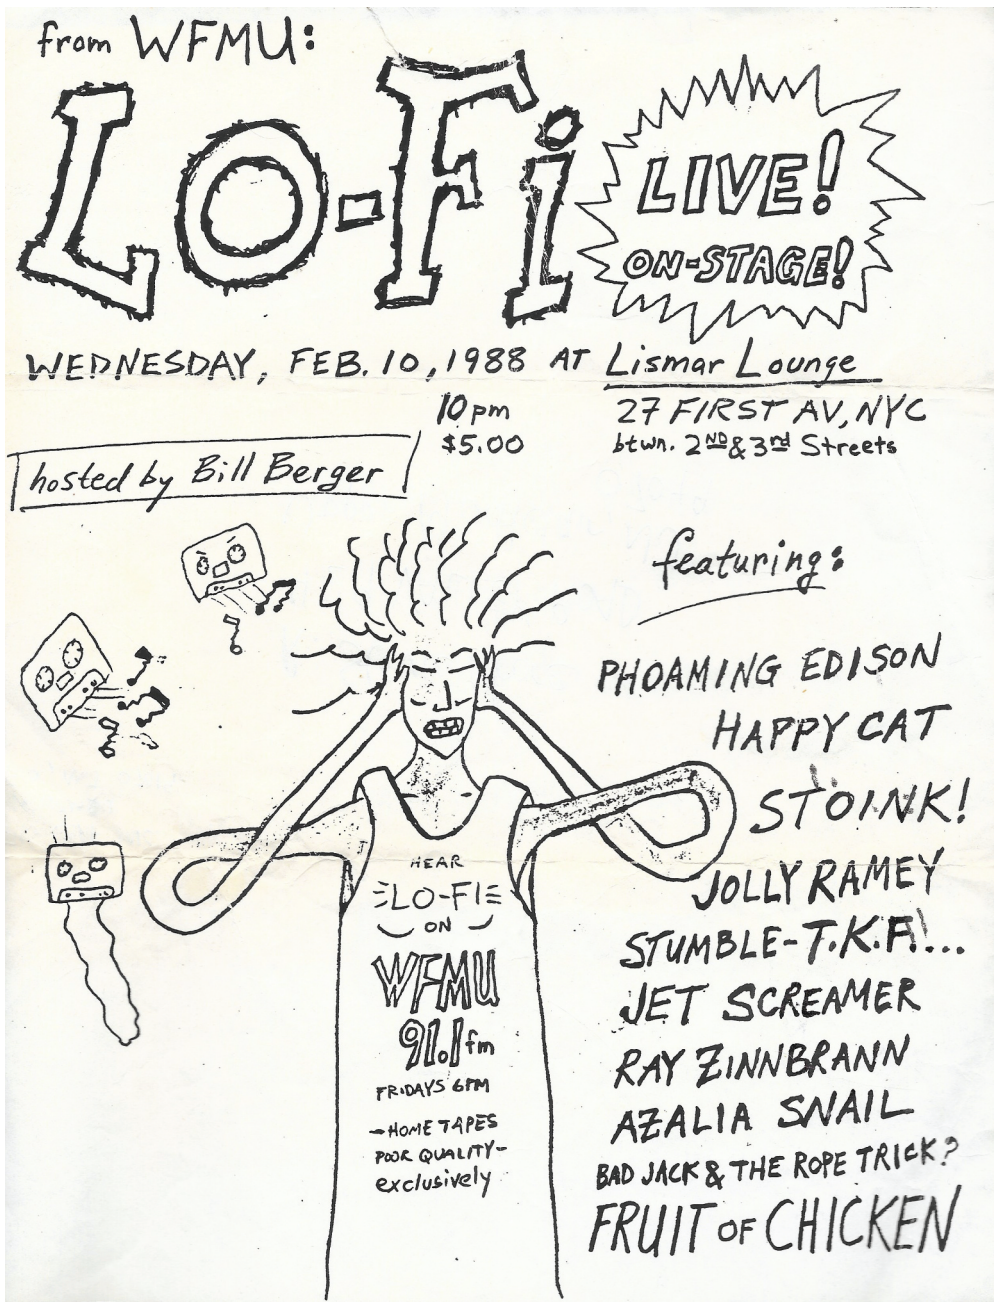 from WFMU:
LO-Fi
LIVE!
ON-STAGE!
WEDNESDAY, FEB. 10, 1988 AT Lismar Lounge
10pm
$5.00
27 FIRST AV, NYC
btwn. 2ND & 3rd Streets
hosted by Bill Berger
featuring:
PHOAMING EDISON
HAPPY CAT
STOINK!
JOLLY RAMEY
STUMBLE-T.K.F!...
JET SCREAMER
RAY ZINNBRANN
AZALIA SNAIL
BAD JACK & THE ROPE TRICK?
FRUIT OF CHICKEN
HEAR
LO-FI
ON
WFMU
91.1 fm
FRIDAYS 6PM
-HOME TAPES
POOR QUALITY-
exclusively